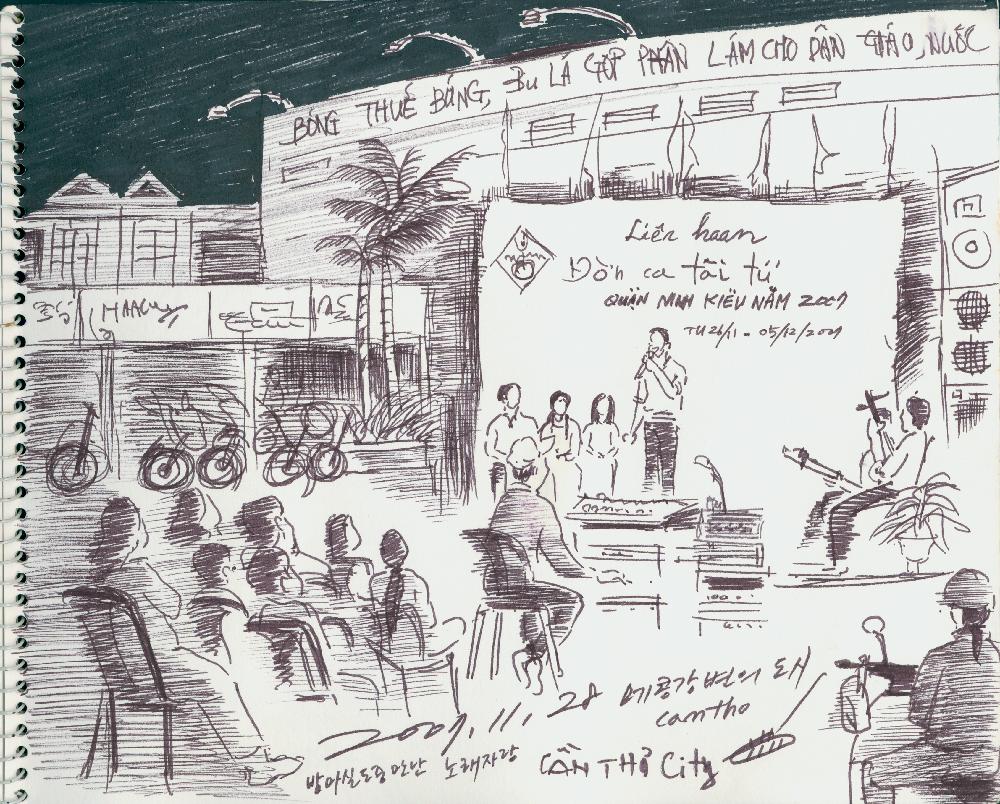 BÓNG THUẾ BÓNG, BU LÁ GÓP PHẦN LÁM CHO DÂN GIÁO, NƯỚC
Liên hoan
Đờn ca tài tử
QUẬN NINH KIỀU NĂM 2007
TU 26/11 - 05/12/2007
2007. 11. 28 메콩강변의 도시
cantho
노래자랑 CẦN THƠ City